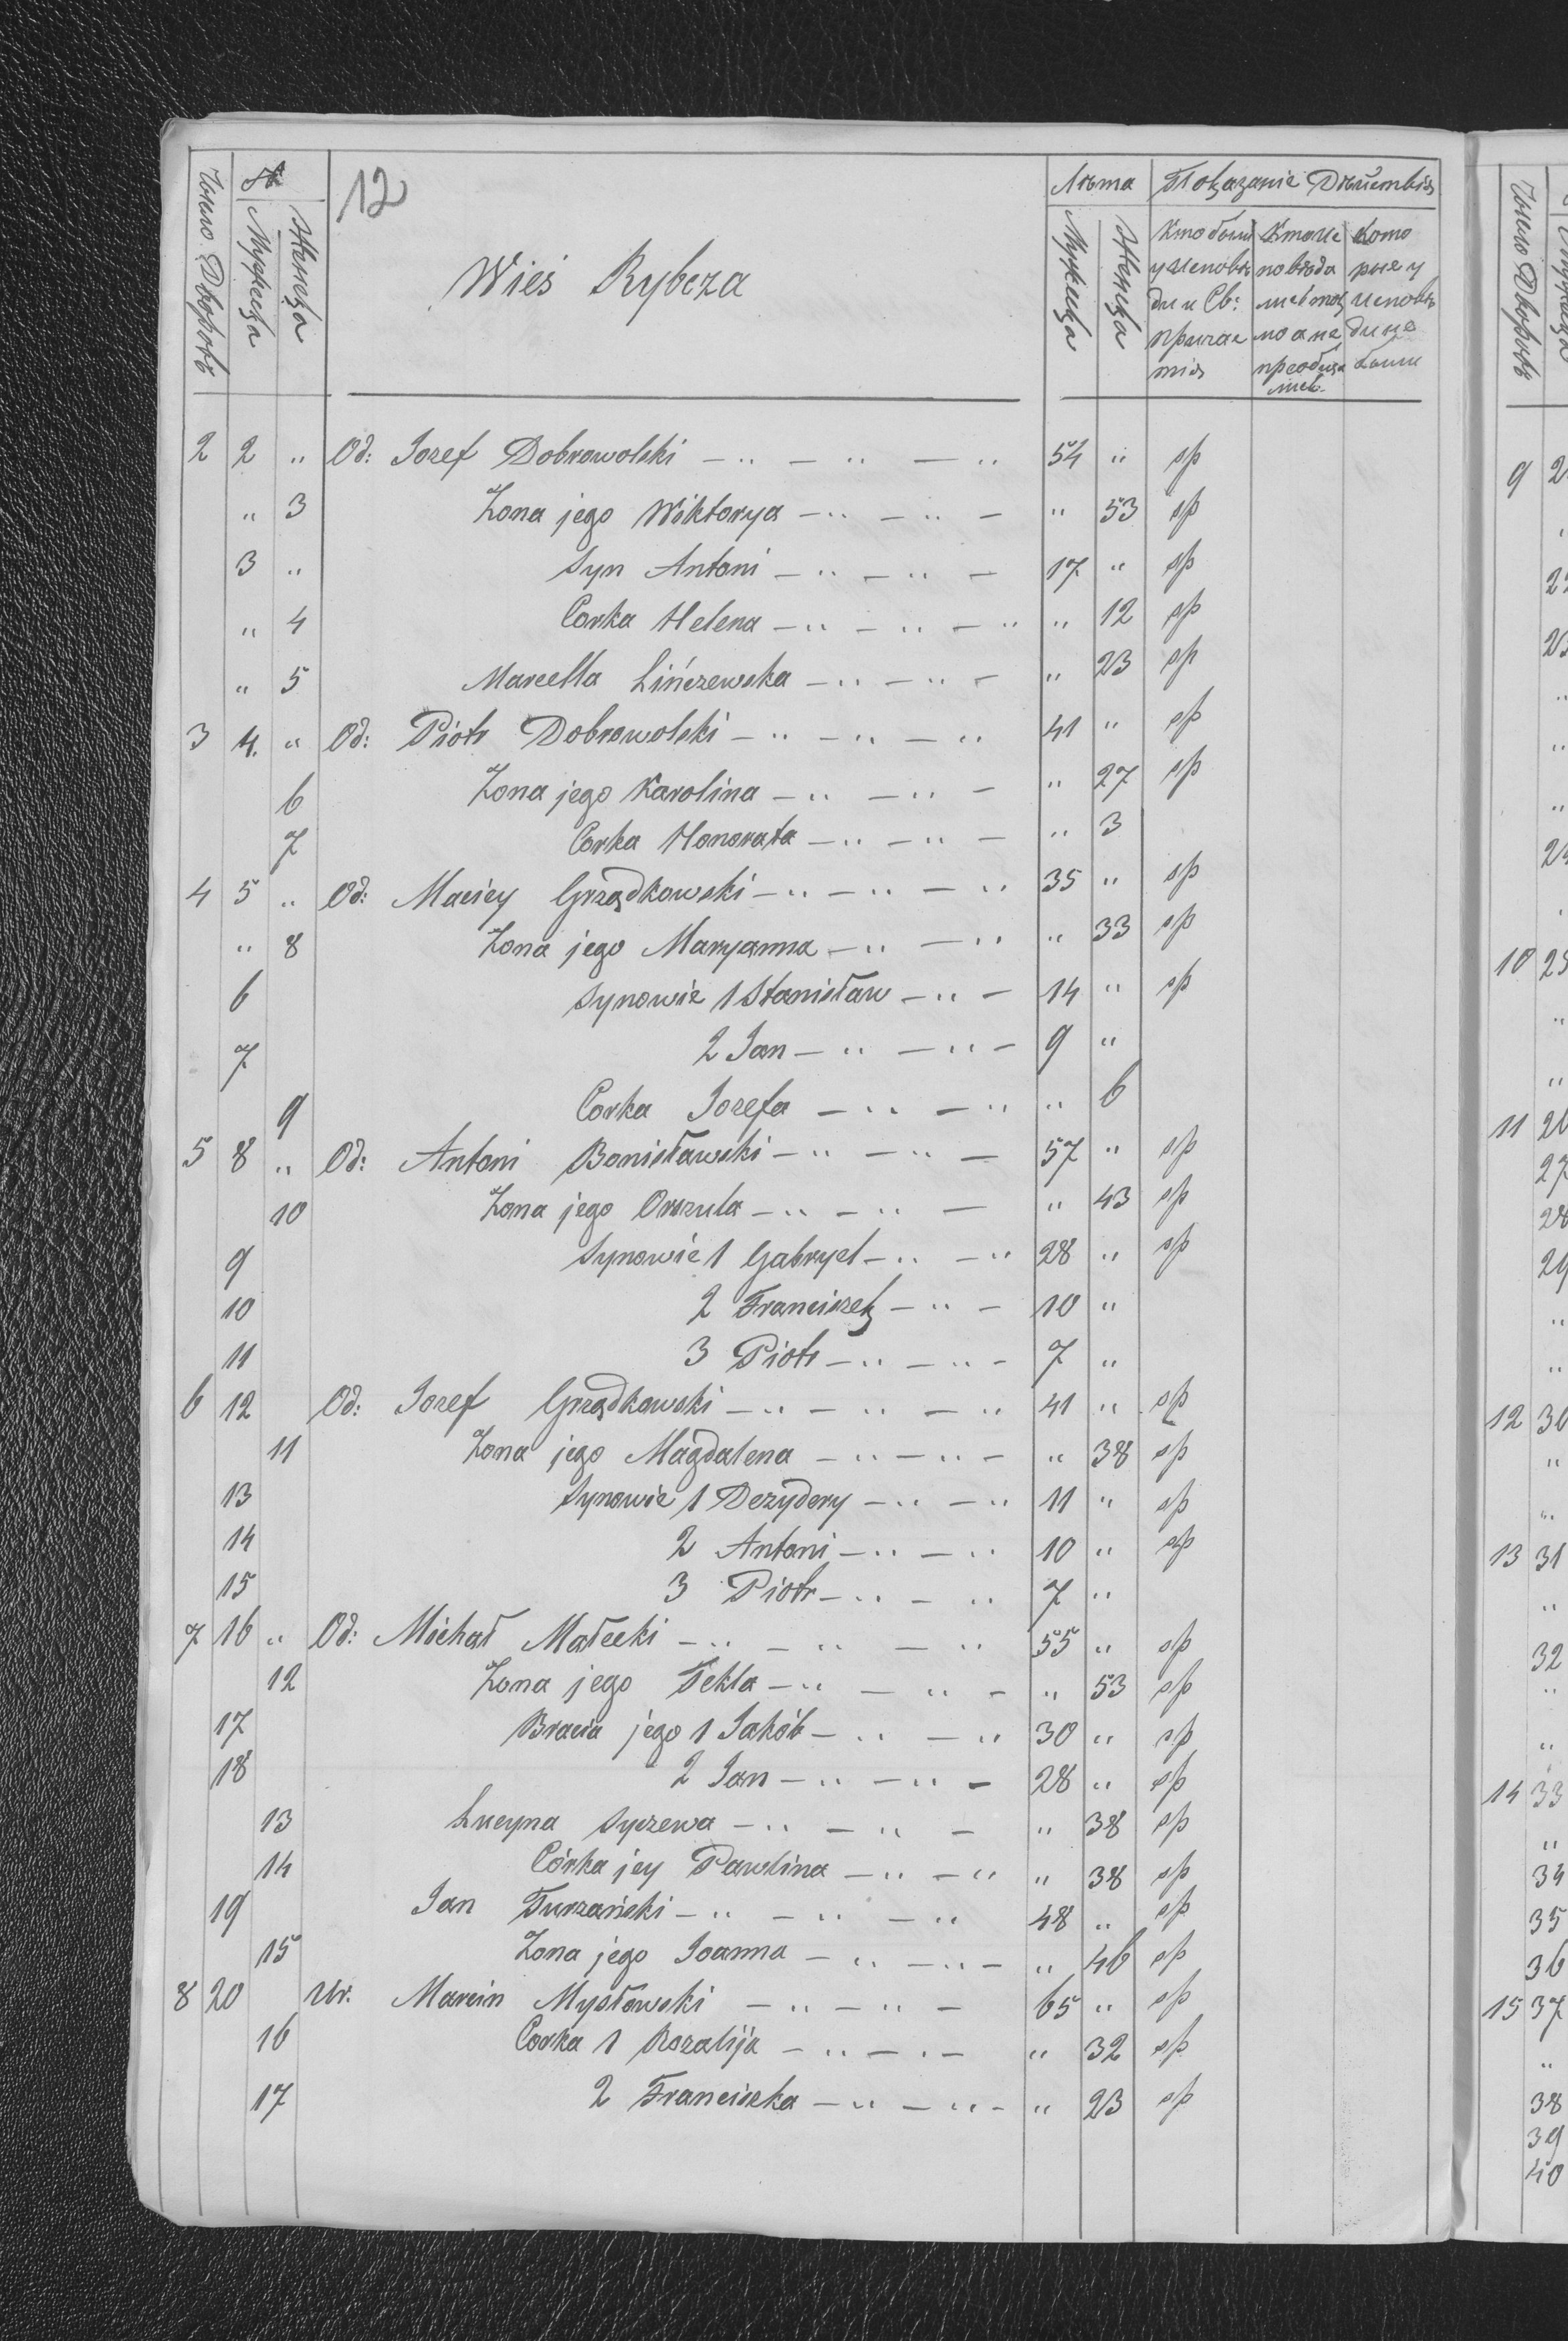 12
№
Лѣта Показаніе Дѣйствія
Число Дворовъ
Мужеска
Женска
Мужеска
Женска
Wieś Rybcza
Кто были у исповѣди и Св: причастія
2 2 " Od: Jozef Dobrowolski — " — " — " 54 " sp
" 3 Zona jego Wiktorya — " — " — " 53 sp
3 " Syn Antoni — " — " — 17 " sp
" 4 Corka Helena — " — " — " " 12 sp
" 5 Marcella Lińczewska — " — " — " 23 sp
3 4. " Od: Piotr Dobrowolski — " — " — " 41 " sp
6 Zona jego Karolina — " — " — " 27 sp
7 Corka Honorata — " — " — " 3
4 5 " Od: Maciey Grządkowski — " — " — " 35 " sp
" 8 Zona jego Maryanna — " — " " 33 sp
6 Synowie 1 Stanisław — " — 14 " sp
7 2 Jan — " — " — 9 "
9 Corka Jozefa — " — " " 6
5 8 " Od: Antoni Bonisławski — " — " — 57 " sp
10 Zona jego Orszula — " — " — " 43 sp
9 Synowie 1 Gabryel — " — " 28 " sp
10 2 Franciszek — " — 10 "
11 3 Piotr — " — " — 7 "
6 12 Od: Jozef Grządkowski — " — " — " 41 " sp
11 Zona jego Magdalena — " — " — " 38 sp
13 Synowie 1 Dezydery — " — " 11 " sp
14 2 Antoni — " — " 10 " sp
15 3 Piotr — " — " 7 "
7 16 " Od: Michał Małecki — " — " — " 55 " sp
12 Zona jego Tekla — " — " — " 53 sp
17 Bracia jego 1 Jakób — " — " 30 " sp
18 2 Jan — " — " — 28 " sp
13 Lucyna Syczewa — " — " — " 38 sp
14 Córka jey Pawlina — " — " " 38 sp
19 Jan Turzański — " — " — " 48 " sp
15 Zona jego Joanna — " — " — " 46 sp
8 20 Ur. Marcin Mysłowski — " — " — 65 " sp
16 Corka 1 Rozalija — " — " — " 32 sp
17 2 Franciszka — " — " — " 23 sp
Число Дворовъ
9
10
11 26
27
28
29
12 30
13 31
32
14 33
34
35
36
15 37
38
39
40